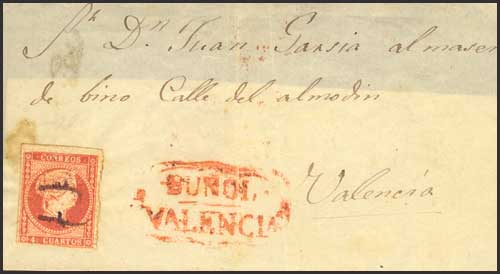 Sr. Dn Juan Garsia almasen
de bino Calle del almodin
Valencia
BUÑOL
VALENCIA
CORREOS
4 CUARTOS